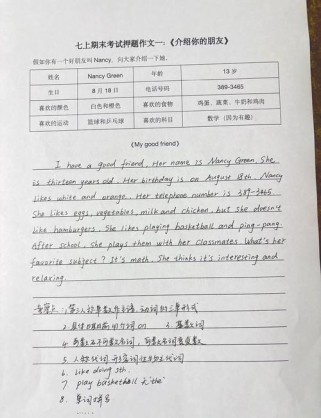 七上期末考试押题作文一:《介绍你的朋友》
假如你有一个好朋友叫Nancy,向大家介绍一下她。
姓名 Nancy Green 年龄 13岁
生日 8月18日 电话号码 389-3465
喜欢的颜色 白色和橙色 喜欢的食物 鸡蛋、蔬菜、牛奶和鸡肉
喜欢的运动 篮球和乒乓球 喜欢的科目 数学(因为有趣)
《My good friend》
I have a good friend. Her name is Nancy Green. She
is thirteen years old. Her birthday is on August 18th. Nancy
likes white and orange. Her telephone number is 389-3465.
She likes eggs, vegetables, milk and chicken, but she doesn't
like hamburgers. She likes playing basketball and ping-pang.
After school, she plays them with her classmates. What's her
favorite subject? It's math. She thinks it's interesting and
relaxing.
1. 第三人称单数作主语,动词的三单形式
2. 具体日期前用介词on 3. 基数词
4. 可数名词
5. 人称代词、形容词性物主代词
6. like doing sth.
7. play basketball 无"the"
8. 单词拼写